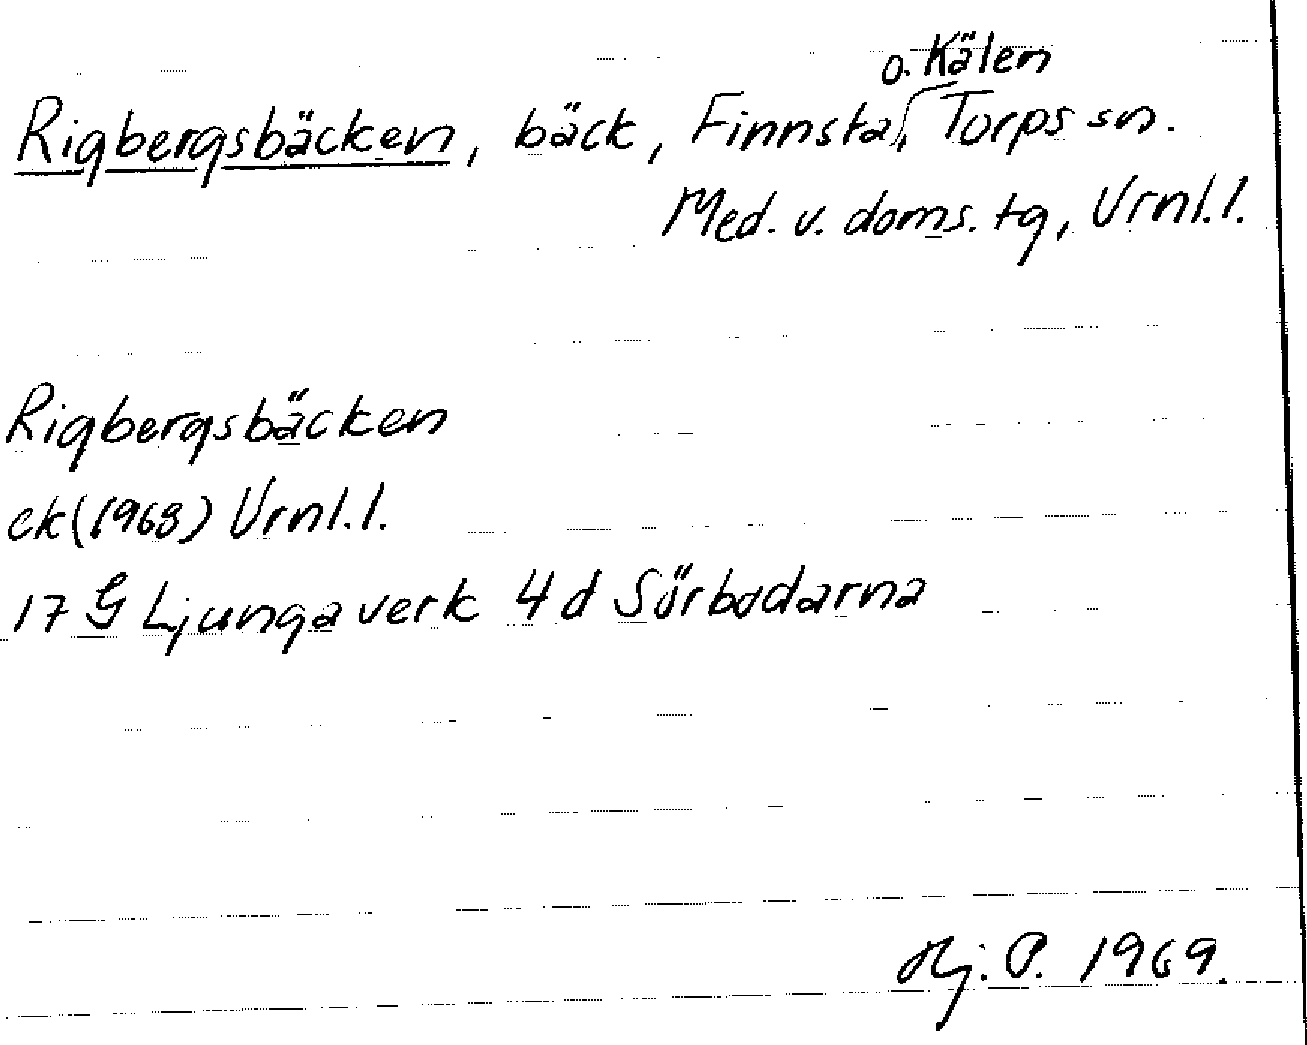 Rigbergsbäcken, bäck, Finnsta o. Kälen, Torps sn.
Med. v. doms. tg, Vrnl. l.
Rigbergsbäcken
ek (1968) Vrnl. l.
17 G Ljungaverk 4 d Sörbodarna
Hj. P. 1969.